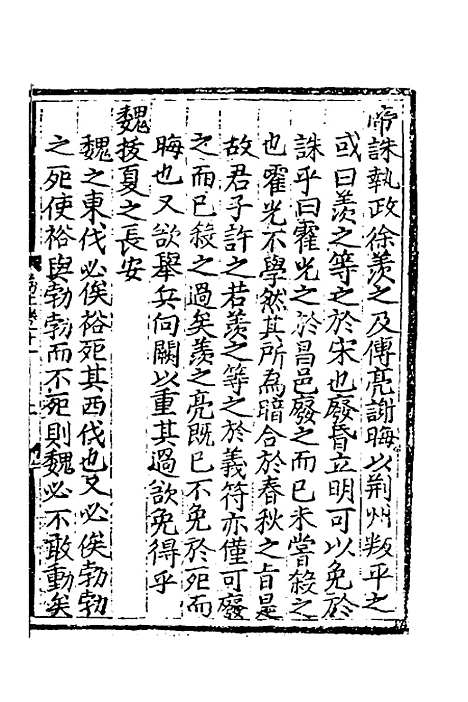 帝誅執政徐羨之及傅亮謝晦以荆州叛平之
或曰羨之等之於宋也廢昏立明可以免於
誅乎曰霍光之於昌邑廢之而已未嘗殺之
也霍光不學然其所為暗合於春秋之旨是
故君子許之若羨之等之於義符亦僅可廢
之而已殺之過矣羨之亮既已不免於死而
晦也又欲舉兵向闕以重其過欲免得乎
魏拔夏之長安
魏之東伐必俟裕死其西伐也又必俟勃勃
之死使裕與勃勃而不死則魏必不敢動矣